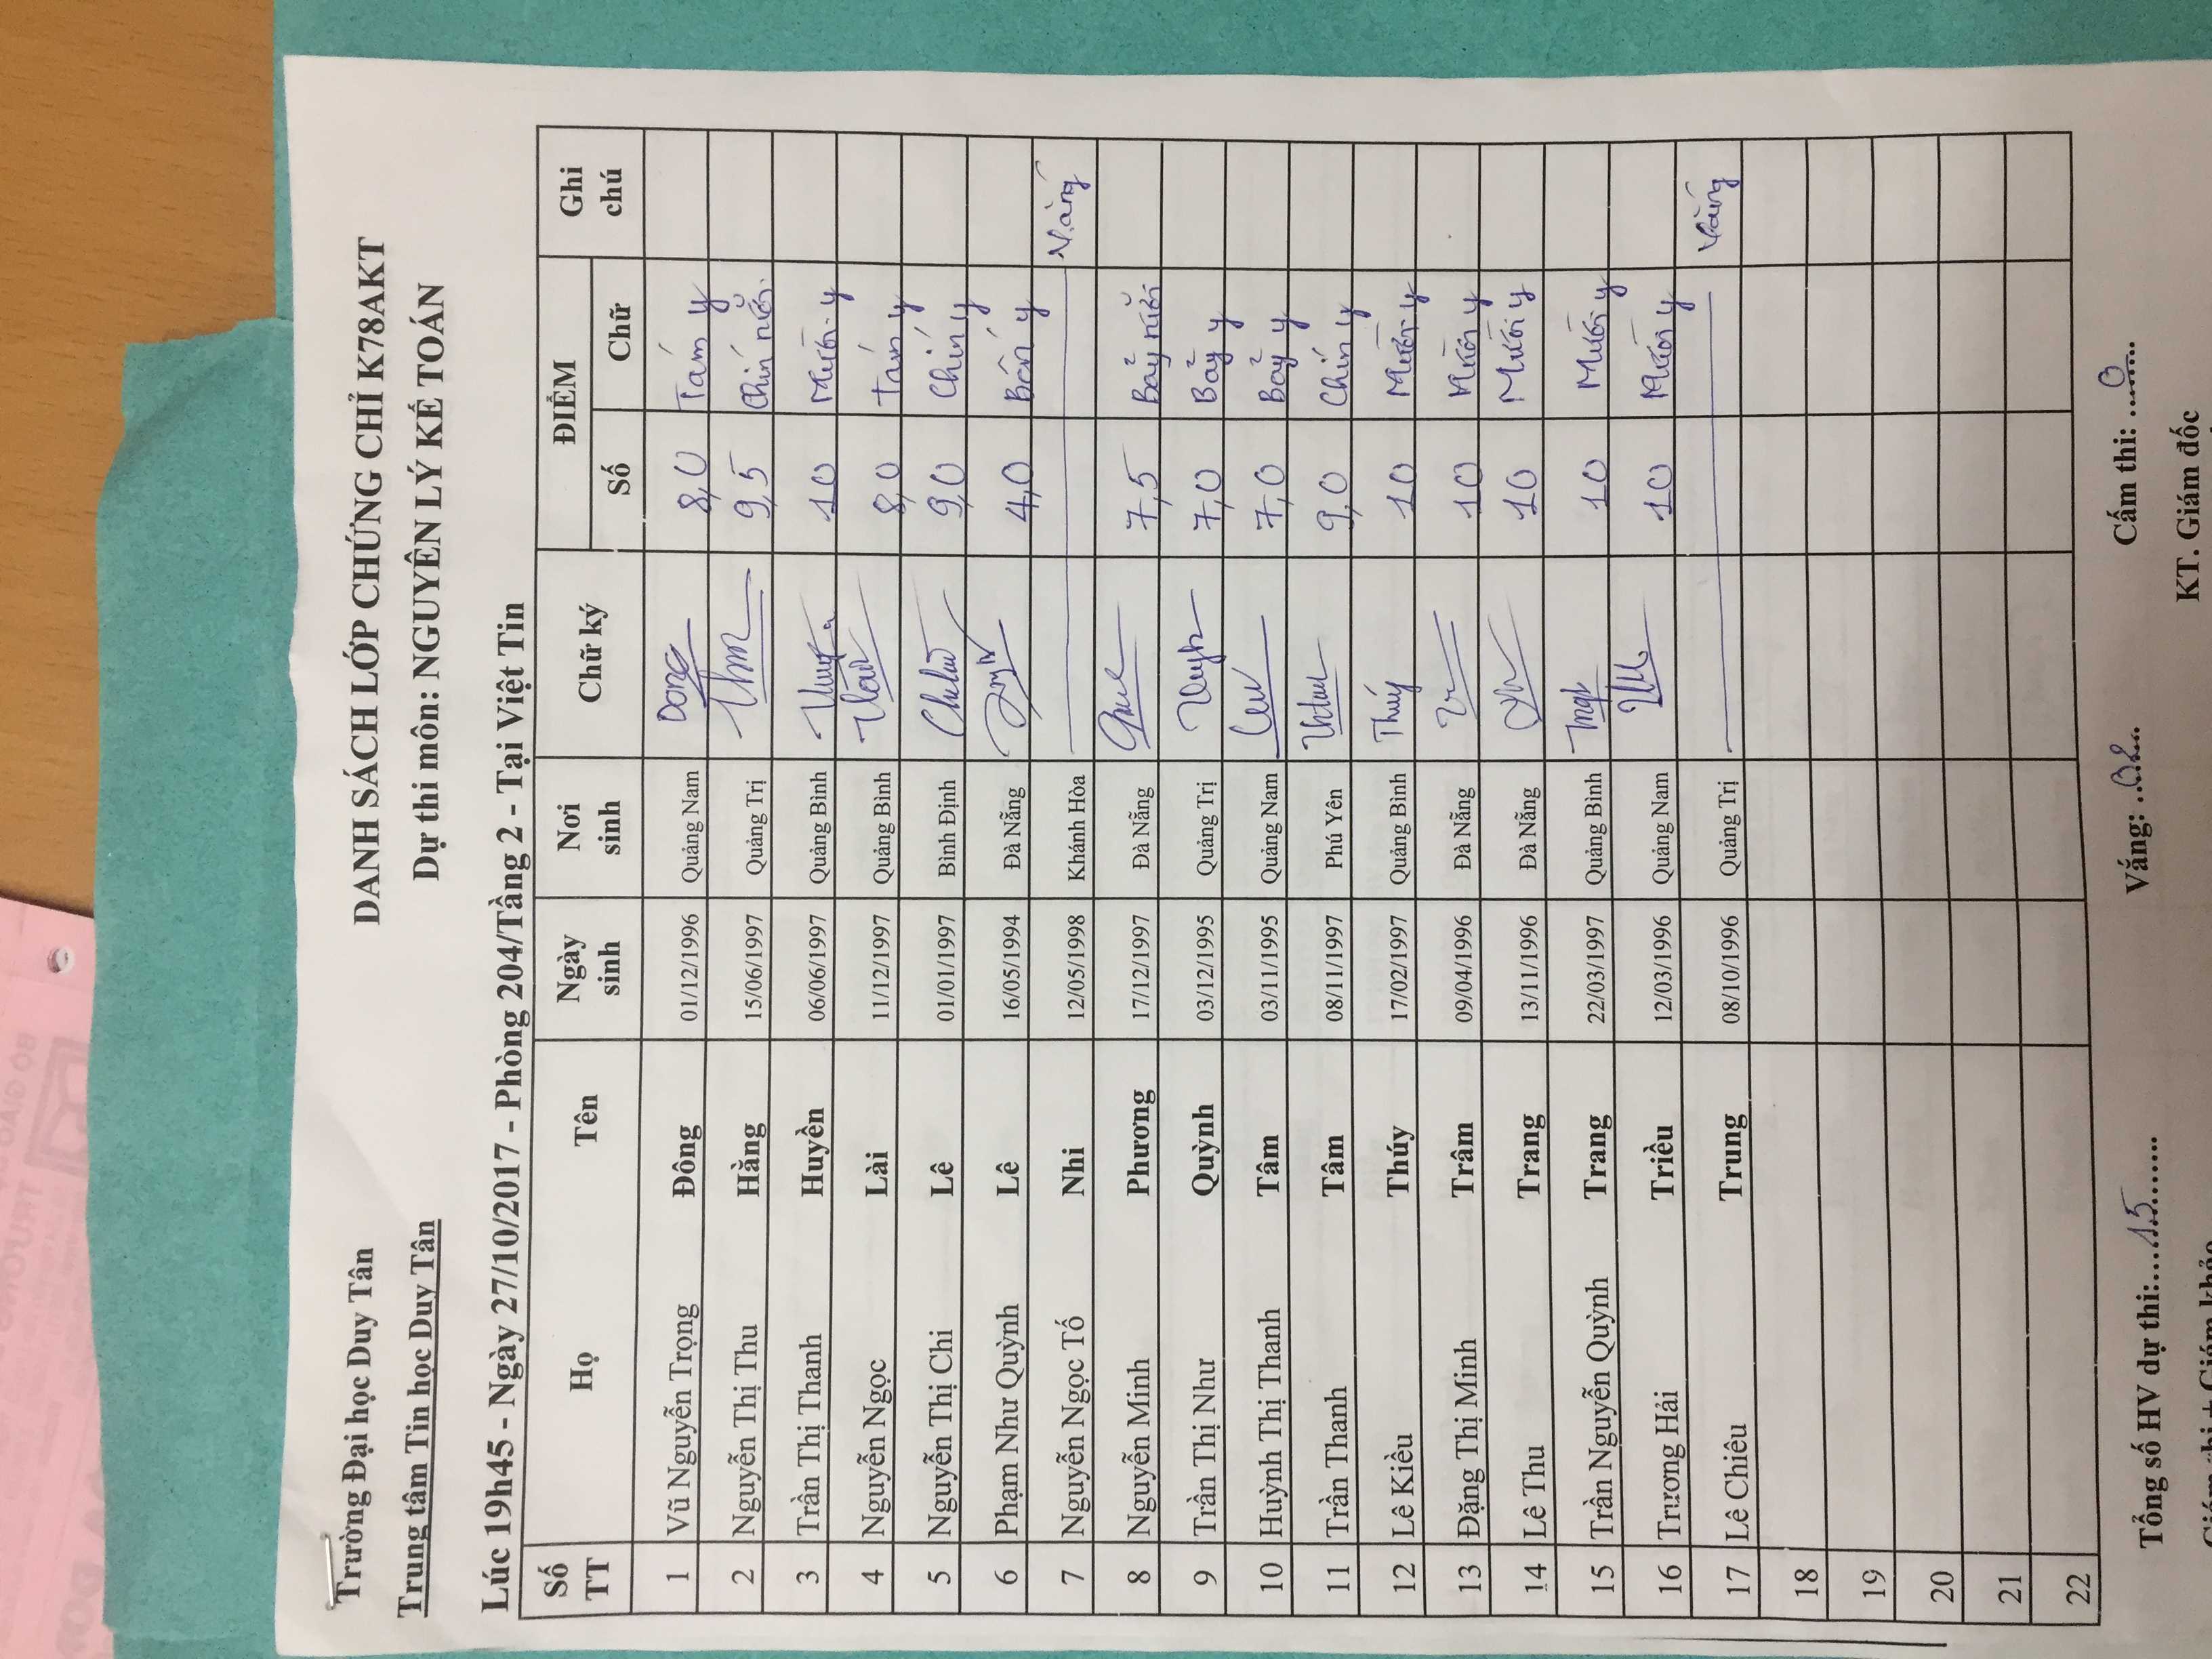 Trường Đại học Duy Tân
DANH SÁCH LỚP CHỨNG CHỈ K78AKT
Trung tâm Tin học Duy Tân
Dự thi môn: NGUYÊN LÝ KẾ TOÁN
Lúc 19h45 - Ngày 27/10/2017 - Phòng 204/Tầng 2 - Tại Việt Tin
Số TT Họ Tên Ngày sinh Nơi sinh Chữ ký ĐIỂM Số Chữ Ghi chú
1 Vũ Nguyễn Trọng Đông 01/12/1996 Quảng Nam Dong 8,0 Tám y
2 Nguyễn Thị Thu Hằng 15/06/1997 Quảng Trị 9,5 Chín rưỡi
3 Trần Thị Thanh Huyền 06/06/1997 Quảng Bình 10 Mười y
4 Nguyễn Ngọc Lài 11/12/1997 Quảng Bình 8,0 Tám y
5 Nguyễn Thị Chi Lê 01/01/1997 Bình Định 9,0 Chín y
6 Phạm Như Quỳnh Lê 16/05/1994 Đà Nẵng 4,0 Bốn y
7 Nguyễn Ngọc Tố Nhi 12/05/1998 Khánh Hòa Vắng
8 Nguyễn Minh Phương 17/12/1997 Đà Nẵng 7,5 Bảy rưỡi
9 Trần Thị Như Quỳnh 03/12/1995 Quảng Trị 7,0 Bảy y
10 Huỳnh Thị Thanh Tâm 03/11/1995 Quảng Nam 7,0 Bảy y
11 Trần Thanh Tâm 08/11/1997 Phú Yên 9,0 Chín y
12 Lê Kiều Thúy 17/02/1997 Quảng Bình Thúy 10 Mười y
13 Đặng Thị Minh Trâm 09/04/1996 Đà Nẵng 10 Mười y
14 Lê Thu Trang 13/11/1996 Đà Nẵng 10 Mười y
15 Trần Nguyễn Quỳnh Trang 22/03/1997 Quảng Bình 10 Mười y
16 Trương Hải Triều 12/03/1996 Quảng Nam 10 Mười y
17 Lê Chiêu Trung 08/10/1996 Quảng Trị Vắng
18
19
20
21
22
Tổng số HV dự thi:....15........ Vắng: ..02.... Cấm thi: ...0....
KT. Giám đốc